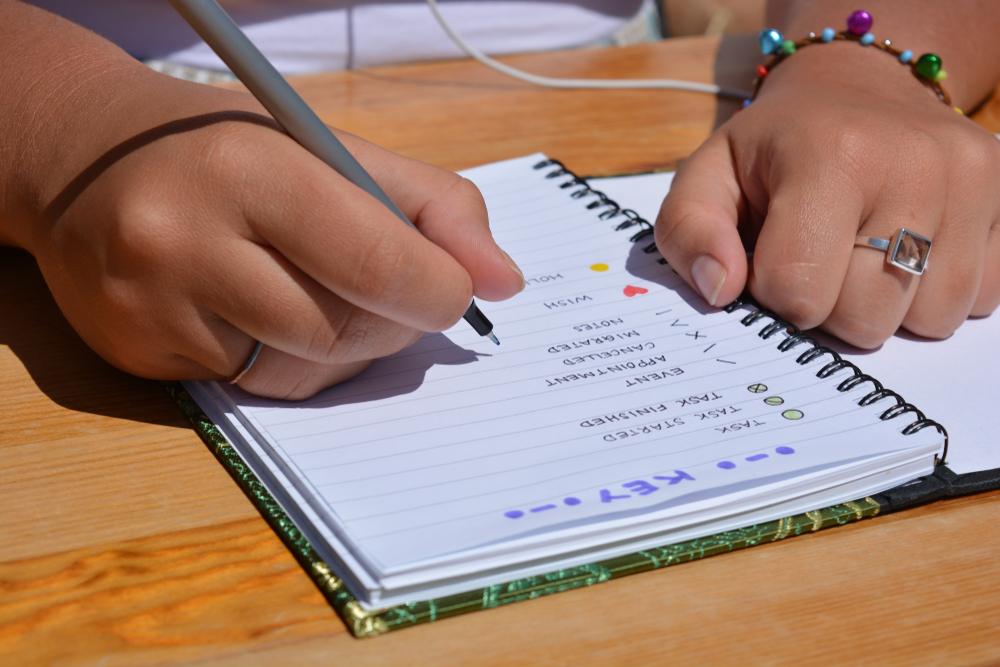 KEY
TASK
TASK STARTED
TASK FINISHED
EVENT
APPOINTMENT
CANCELLED
MIGRATED
NOTES
WISH
HOL